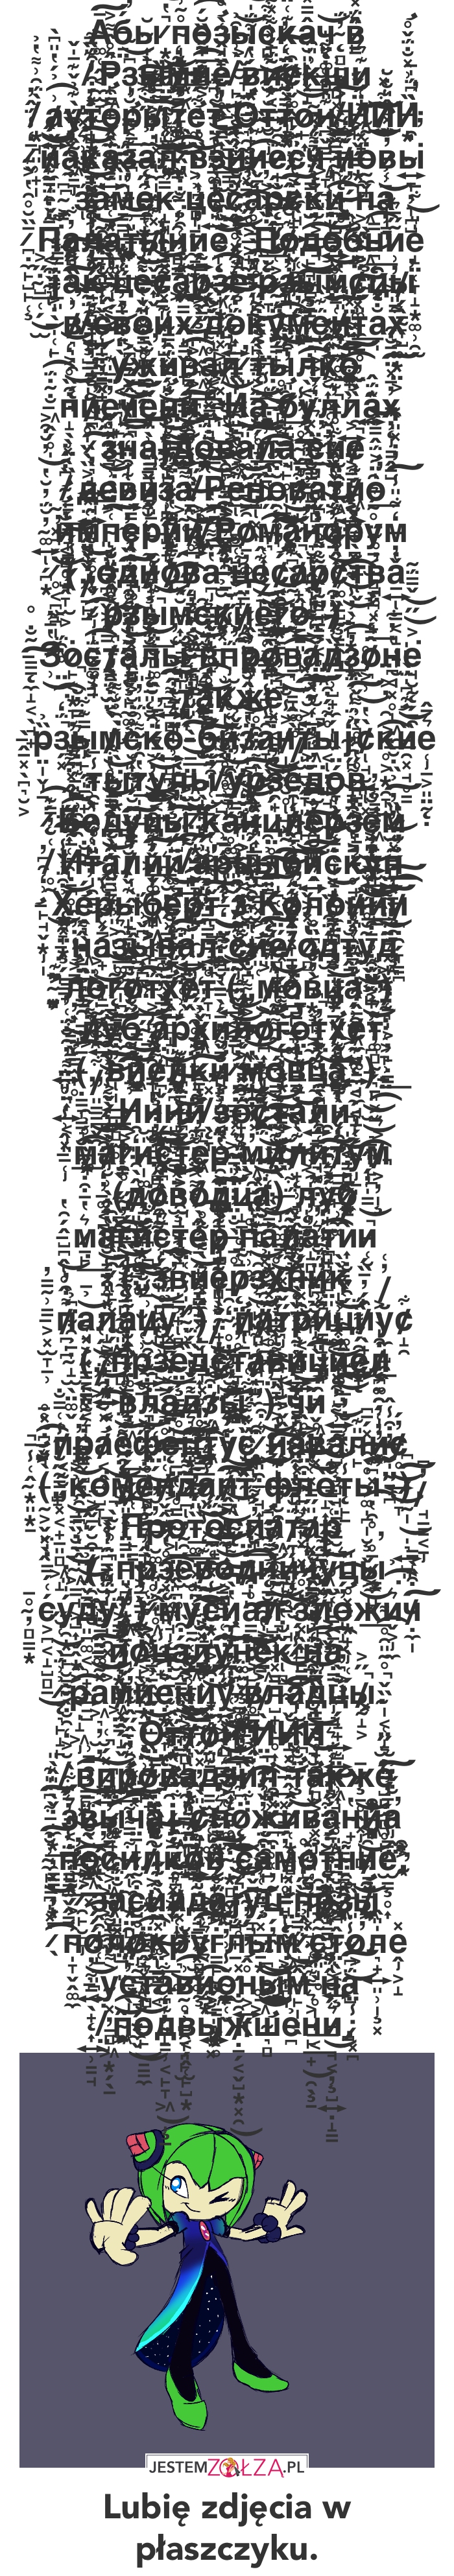 Абы позыскач в
Рзымие виекши
ауторытет Оттон ИИИ
наказал взниесч новы
замек цесарски на
Палатыние. Подобние
так цесарз франкийски
в своих документах
уживал тылко
пиечеци. На буллах
знайдовала сие
девиза Реноватио
империи Романорум
Зостали впровадзоне
также
рзымско-бизантыйские
тытулы урзедов.
Италии арцыбискуп
Херыберт з Колонии
называл сие одтуд
логотхет ( мовца )
луб архилоготхет
( виелки мовца ).
магистер милитум
(доводца) луб
магистер палатии
( звиерзхник
палацу ), патрициус
владзы ) чи
праефектус навалис
( комендант флоты ).
суду ) мусиал зложич
поцалунек на
рамиениу владцы.
Оттон ИИИ
впровадзил также
звычай споживания
посилков самотние,
засиадаяц прзы
полокруглым столе
уставионым на
подвыжшениу.
JESTEMZOŁZA.PL
Lubię zdjęcia w
płaszczyku.